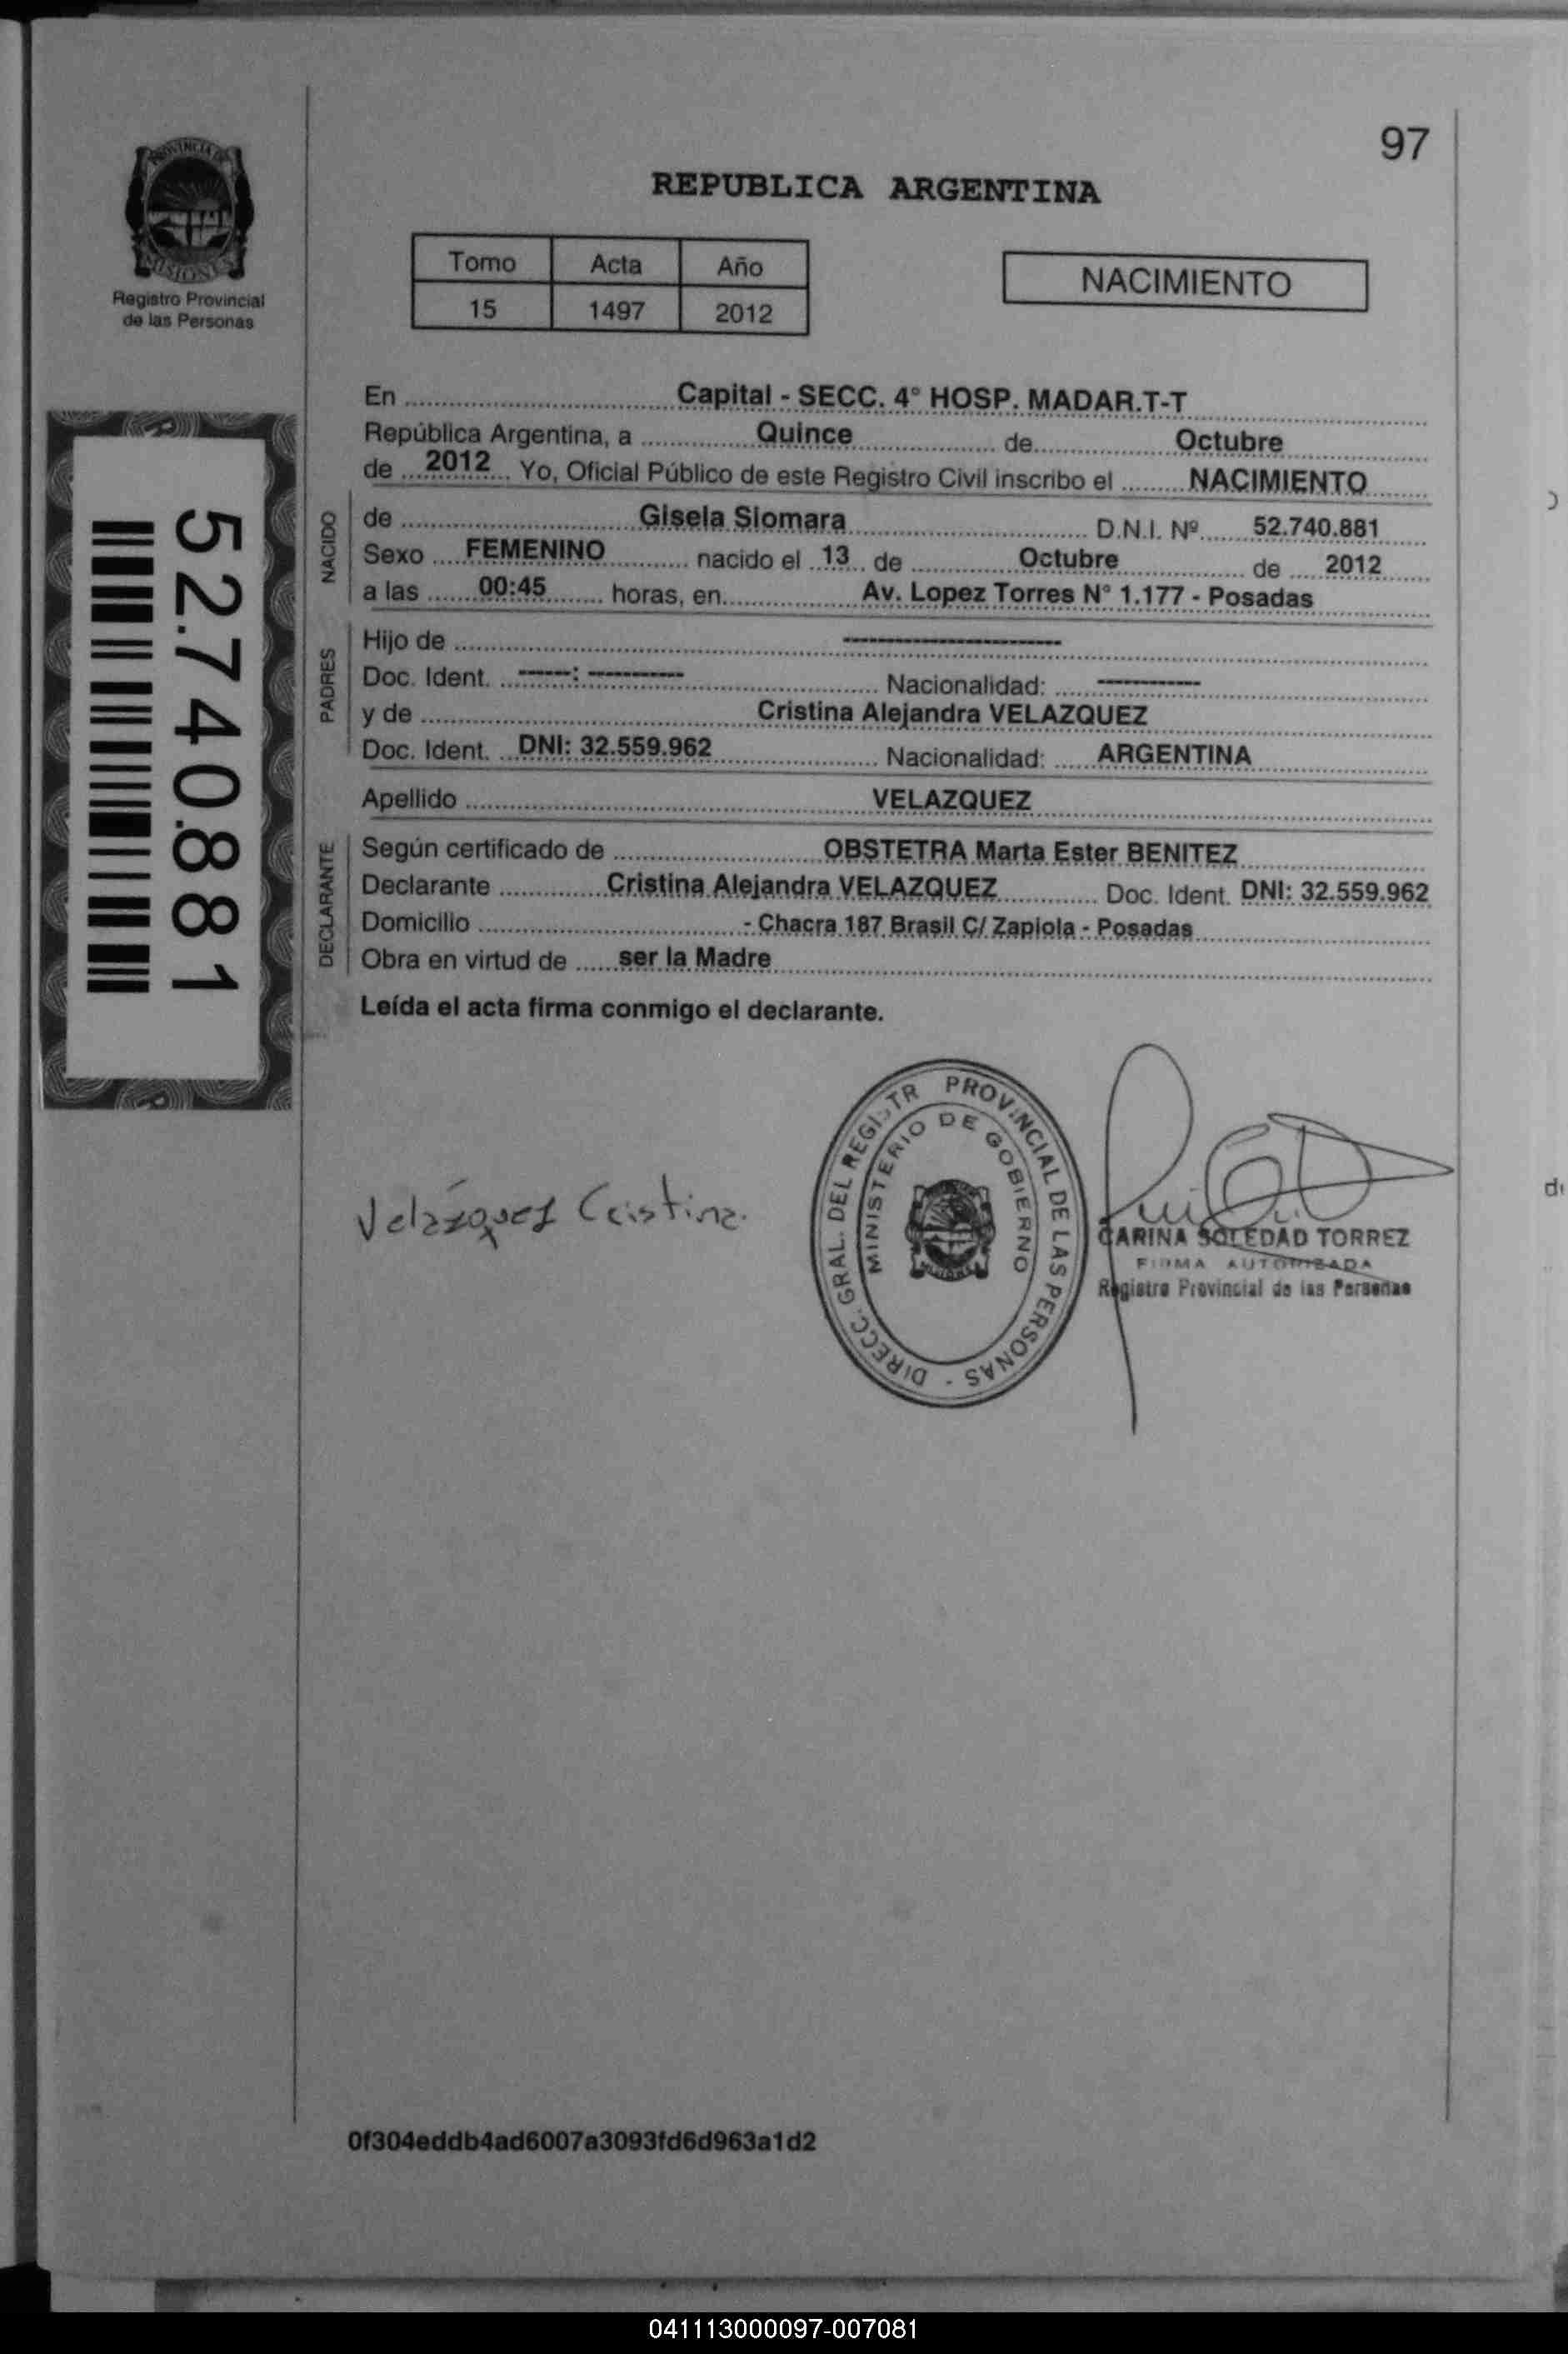 97
REPUBLICA ARGENTINA
PROVINCIA DE
MISIONES
Registro Provincial
de las Personas
Tomo Acta Año
15 1497 2012
NACIMIENTO
En Capital - SECC. 4° HOSP. MADAR.T-T
República Argentina, a Quince de Octubre
de 2012 Yo, Oficial Público de este Registro Civil inscribo el NACIMIENTO
NACIDO
de Gisela Siomara D.N.I. Nº 52.740.881
Sexo FEMENINO nacido el 13 de Octubre de 2012
a las 00:45 horas, en Av. Lopez Torres N° 1.177 - Posadas
PADRES
Hijo de --------------------
Doc. Ident. -----: --------- Nacionalidad: -----------
y de Cristina Alejandra VELAZQUEZ
Doc. Ident. DNI: 32.559.962 Nacionalidad: ARGENTINA
Apellido VELAZQUEZ
DECLARANTE
Según certificado de OBSTETRA Marta Ester BENITEZ
Declarante Cristina Alejandra VELAZQUEZ Doc. Ident. DNI: 32.559.962
Domicilio - Chacra 187 Brasil C/ Zapiola - Posadas
Obra en virtud de ser la Madre
Leída el acta firma conmigo el declarante.
52.740.881
Velázquez Cristina.
DIRECC. GRAL. DEL REGISTR PROVINCIAL DE LAS PERSONAS -
MINISTERIO DE GOBIERNO
CARINA SOLEDAD TORREZ
FIRMA AUTORIZADA
Registro Provincial de las Personas
0f304eddb4ad6007a3093fd6d963a1d2
041113000097-007081